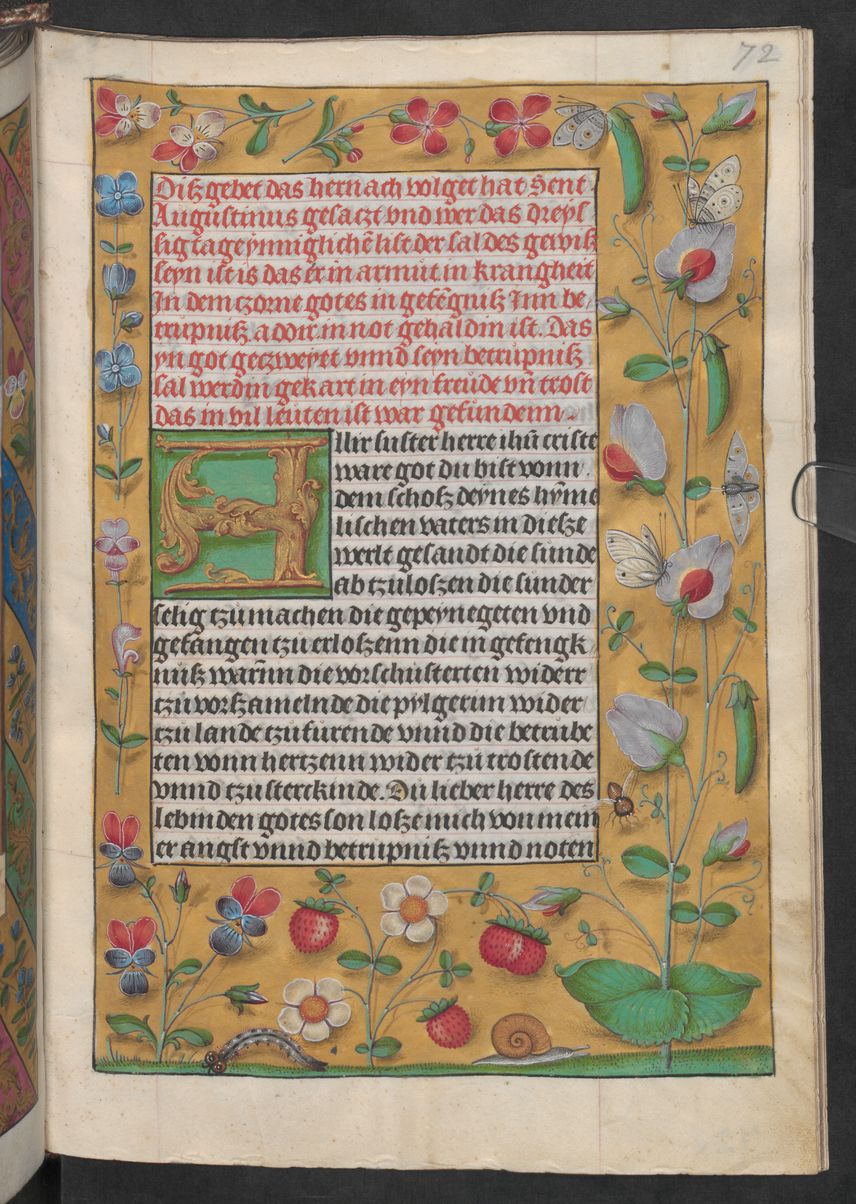 72
Disz gebet das hernach volget hat Sent
Augustinus gesaczt vnd wer das dreys
sig tage ynniglichē list der sal des gewisz
seyn ist is das er in armut in krangheit
In dem czorne gotes in gefēgnisz Inn be
trupnisz adoir in not gehaldin ist. Das
yn got geczweyet vnnd seyn betrupnisz
sal werdin gekart in eyn freude vn̄ trost
das in vil leuten ist war gefundenn
Allir suster herre ihū criste
ware got du bist vonn
dem schosz deynes hȳme
lischen vaters in diesze
werlt gesandt die sunde
ab tzuloszen die sunder
selig tzu machen die gepeynegeten vnd
gefangen tzu erloszenn die in gefengk
nusz warnn die vorschusterten widerr
tzu vorszamelnde die pylgerim wider
tzu lande tzu furende vnnd die betrube
ten vonn hertzenn wider tzu trostende
vnnd tzu sterckinde. Du lieber herre des
lebinden gotes son losze mich von mein
er angst vnnd betrupnisz vnnd noten